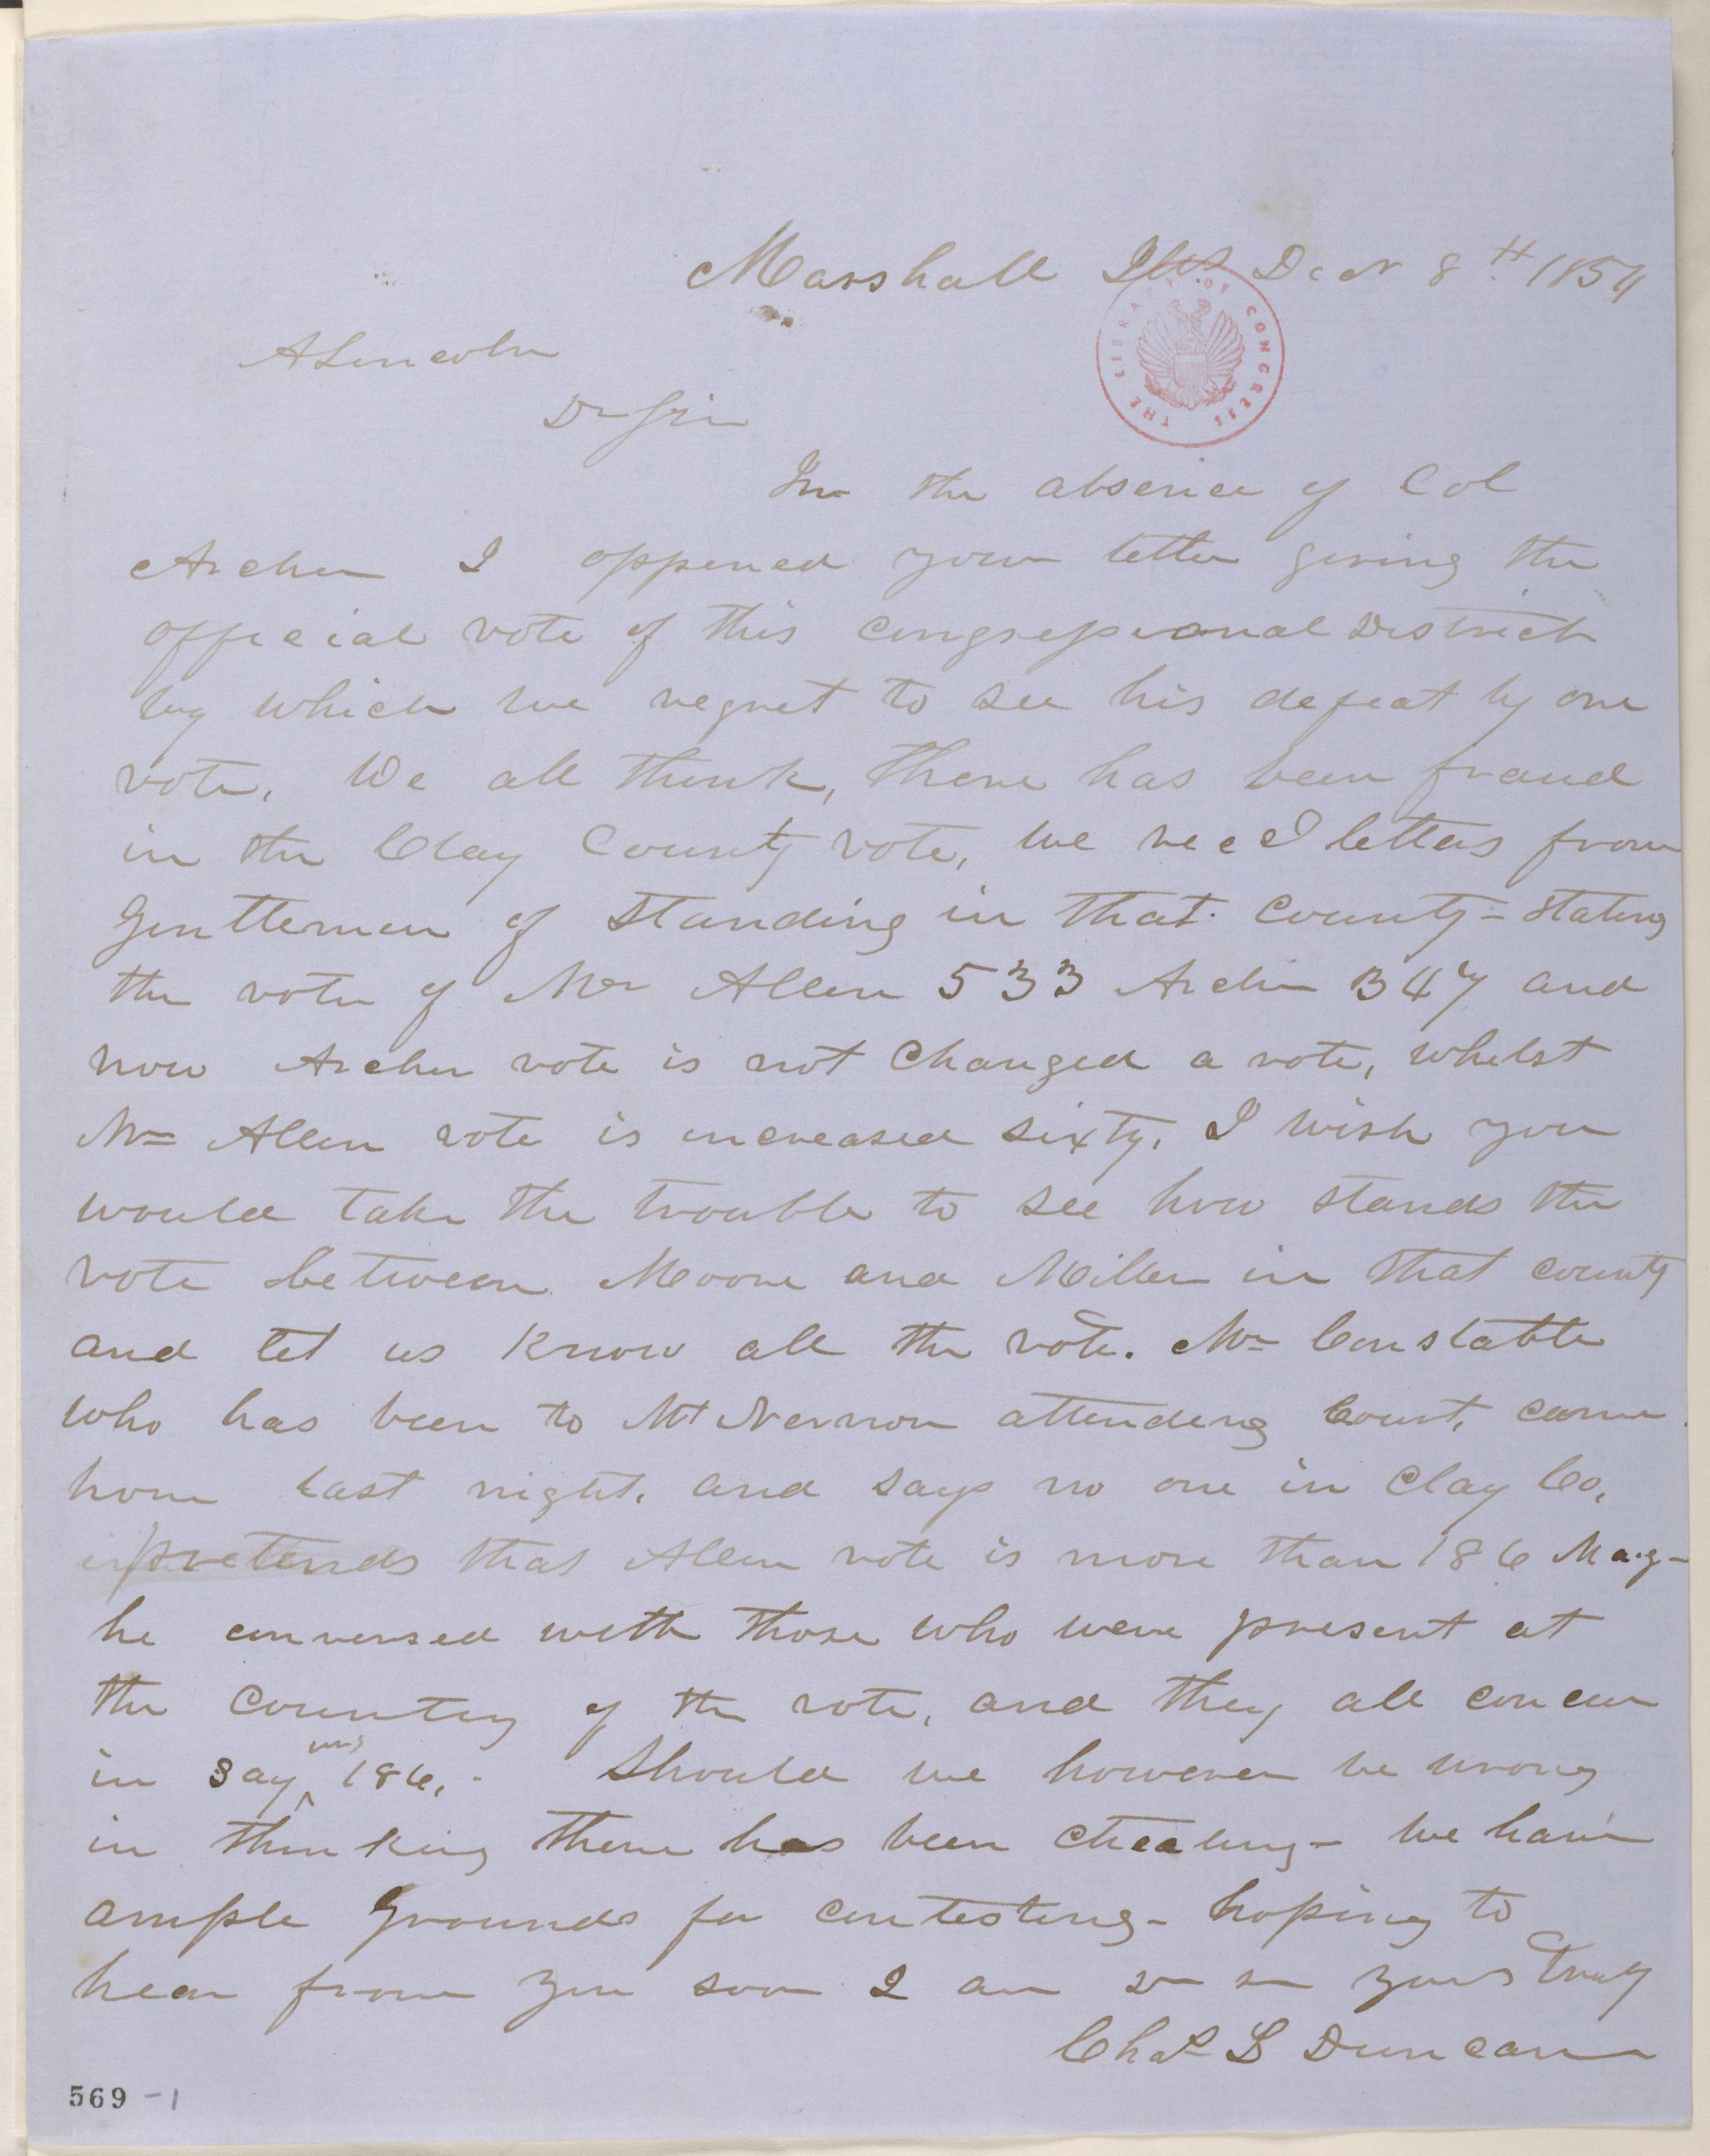 Marshall Ills Decr 8th 1854
THE LIBRARY OF CONGRESS
A Lincoln
Dr Sir
In the absence of Col
Archer I oppened your letter giving the
official vote of this congressional District
by which we regret to see his defeat by one
vote. We all think, there has been fraud
in the Clay County vote, we recd letters from
Gentlemen of standing in that County - stating
the vote of Mr Allen 533 Archer 347 and
now Archer vote is not changed a vote, whilst
Mr Allen vote is increased sixty. I wish you
would take the trouble to see how stands the
vote between Moore and Miller in that county
and let us know all the vote. Mr Constable
who has been to Mt Vernon attending Court, came
home last night. and says no one in Clay Co,
pretends that Allen vote is more than 186 Maj-
he conversed with those who were present at
the counting of the vote, and they all concur
in saying 186. - Should we however be wrong
in thinking there has been cheating - we have
ample grounds for contesting - hoping to
hear from you soon I am Dr Sr yours Truly
Chas S Duncan
569 - 1